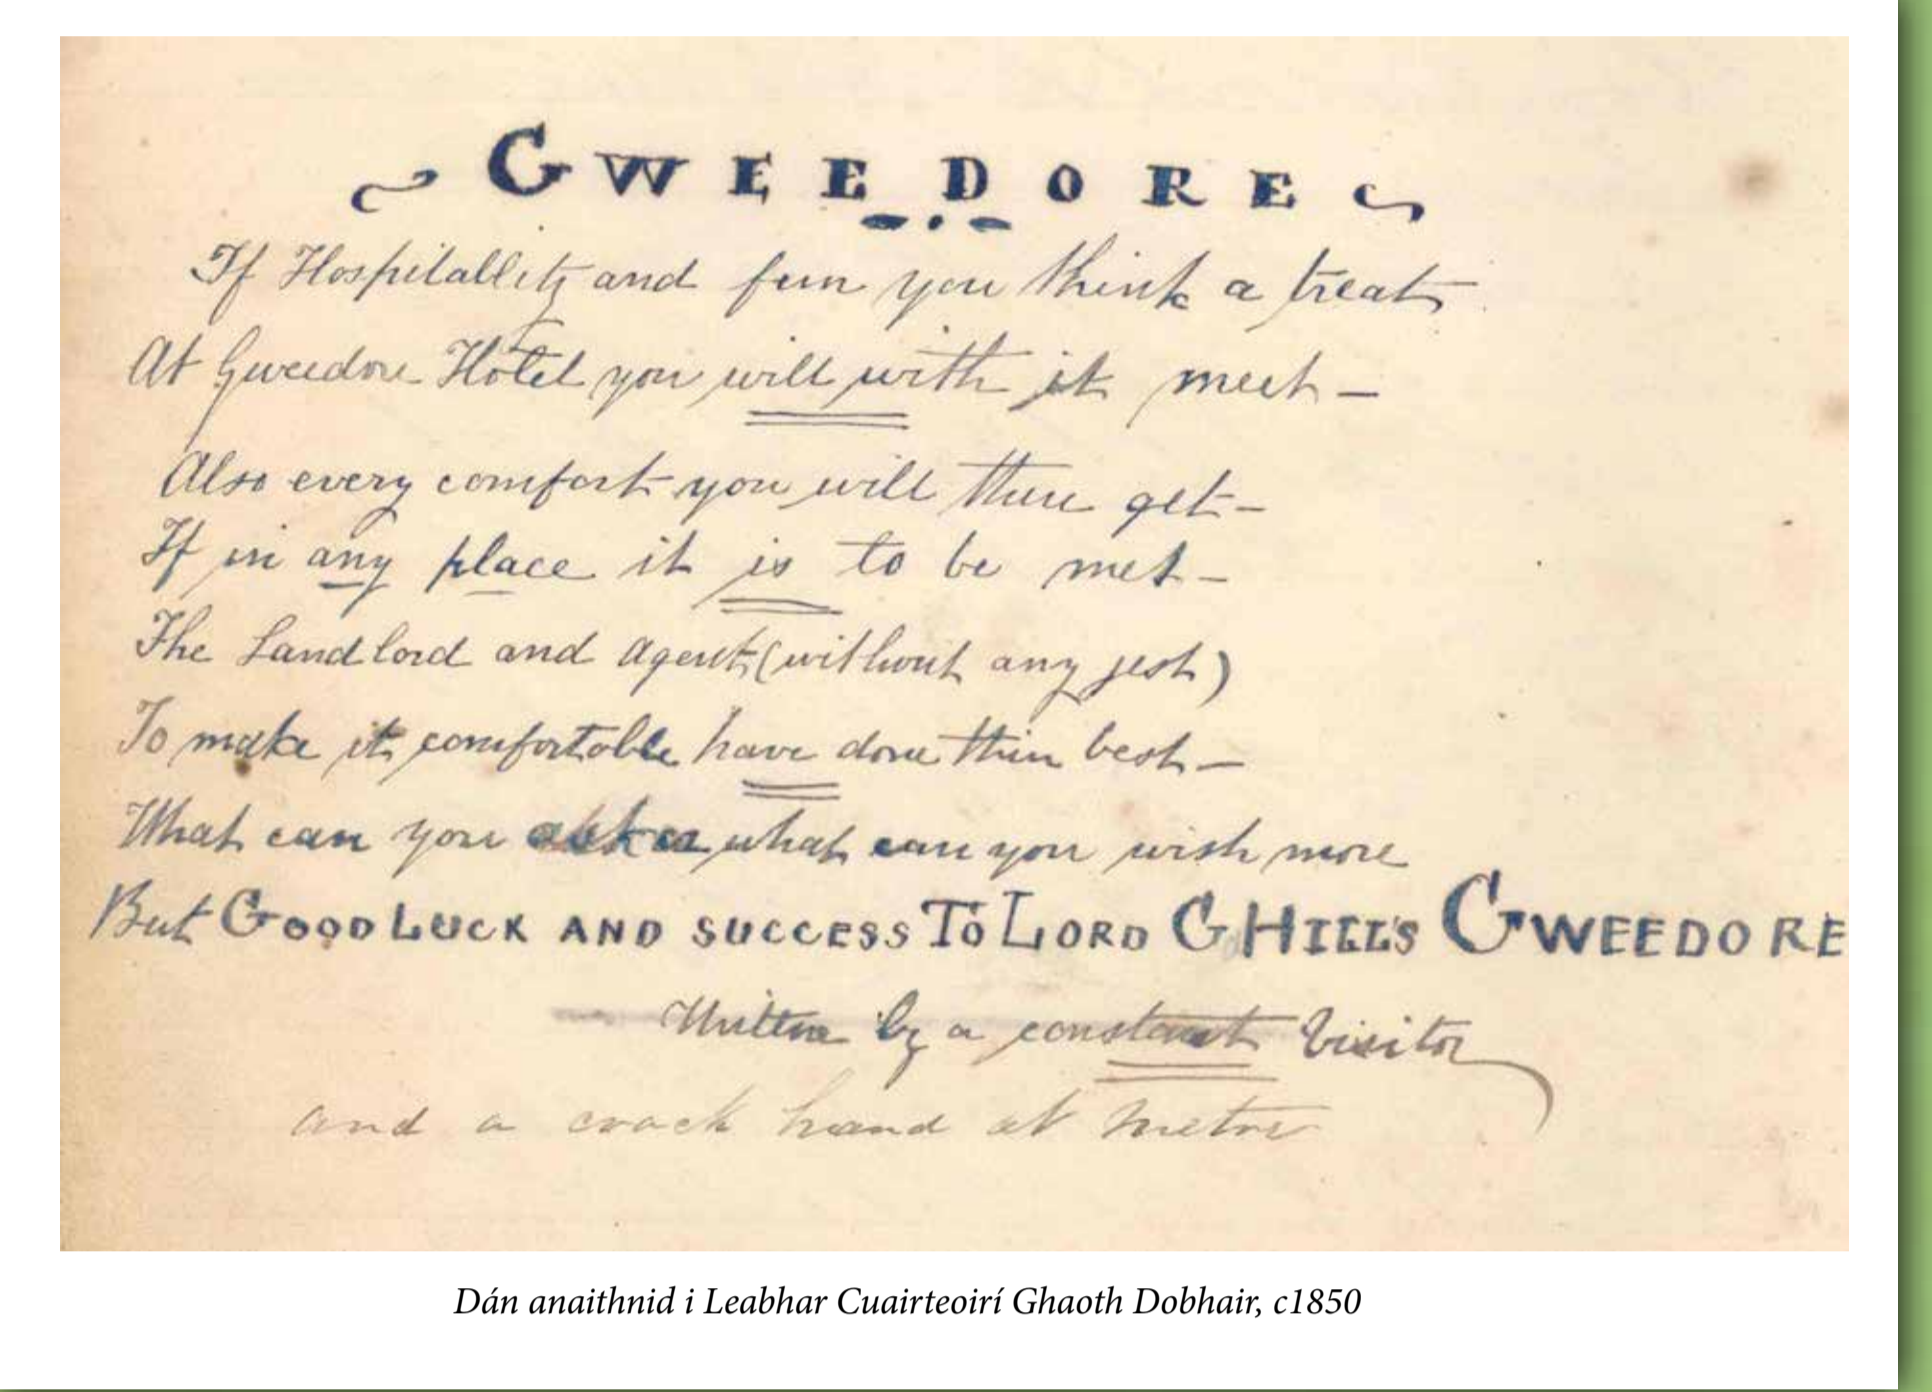 GWEEDORE
If Hospitallity and fun you think a treat
At Gweedore Hotel you will with it meet –
Also every comfort you will there get –
If in any place it is to be met –
The Landlord and Agent (without any jest)
To make it comfortable have done their best –
What can you ask or what can you wish more
But GOOD LUCK AND SUCCESS TO LORD G HILL'S GWEEDORE
Written by a constant Visitor
and a crack hand at metre
Dán anaithnid i Leabhar Cuairteoirí Ghaoth Dobhair, c1850